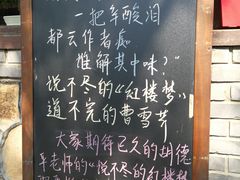 一把辛酸泪
都云作者痴
谁解其中味？
说不尽的《红楼梦》
道不完的曹雪芹
大家期待已久的胡德
平老师的《说不尽的红楼梦